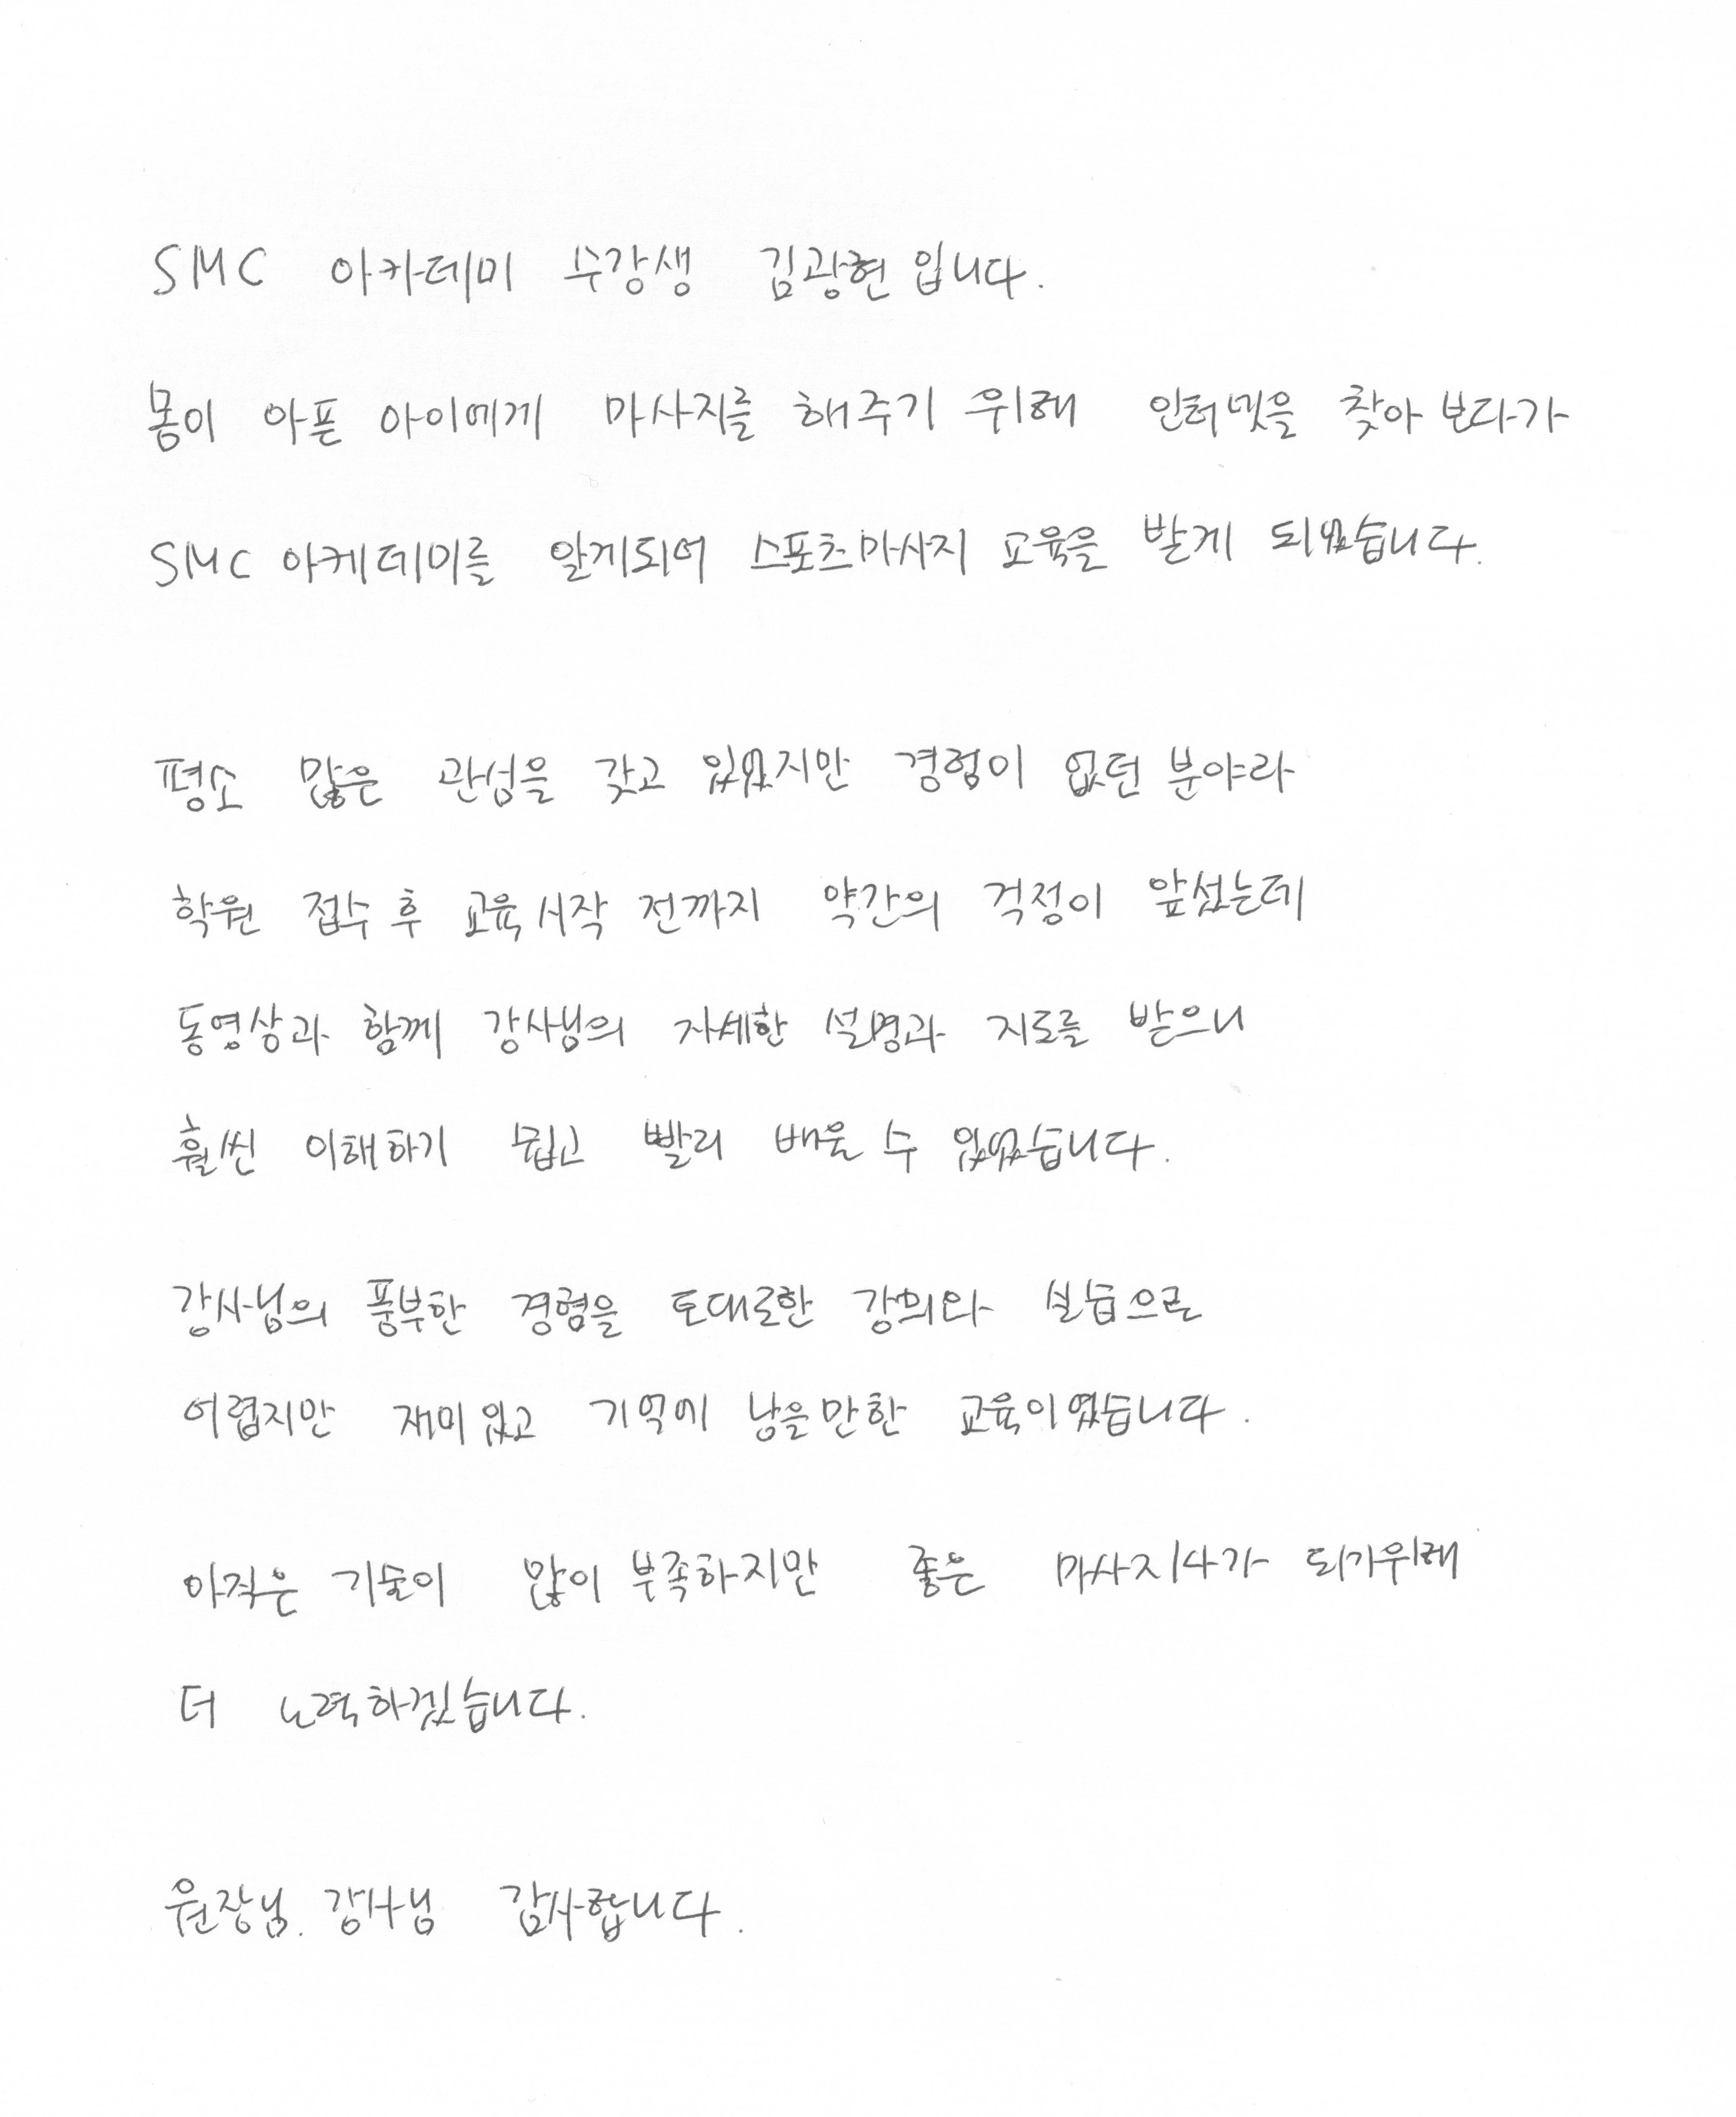 SMC 아카데미 수강생 김광현 입니다.
몸이 아픈 아이에게 마사지를 해주기 위해 인터넷을 찾아 보다가
SMC 아케데미를 알게되어 스포츠마사지 교육을 받게 되었습니다.
평소 많은 관심을 갖고 있었지만 경험이 없던 분야라
학원 접수 후 교육시작 전까지 약간의 걱정이 앞섰는데
동영상과 함께 강사님의 자세한 설명과 지도를 받으니
훨씬 이해하기 쉽고 빨리 배울 수 있었습니다.
강사님의 풍부한 경험을 토대로한 강의와 실습으로
어렵지만 재미있고 기억에 남을만한 교육이었습니다.
아직은 기술이 많이 부족하지만 좋은 마사지사가 되기위해
더 노력하겠습니다.
원장님. 강사님 감사합니다.